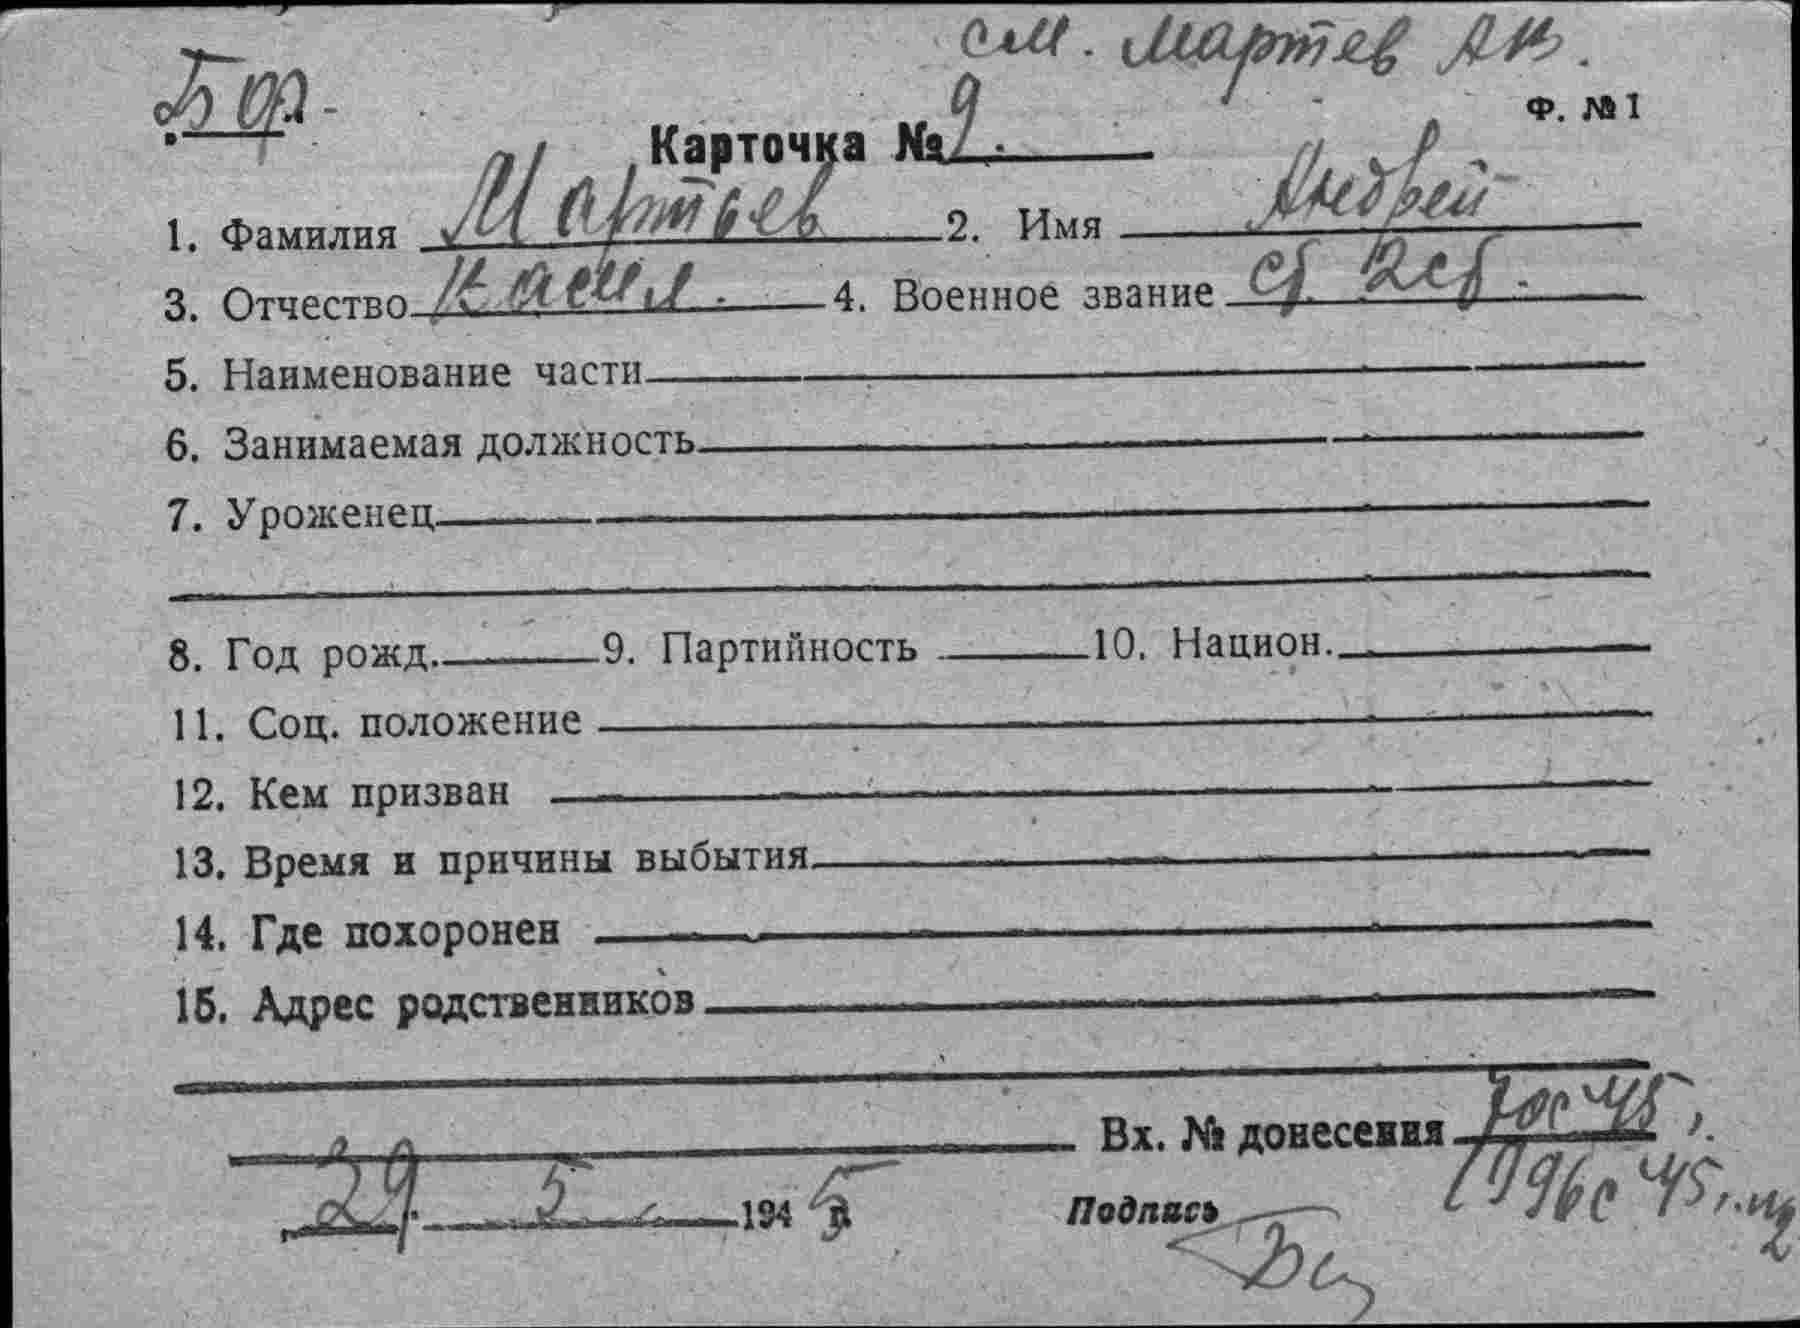 см. Мартев АВ.
Бор-
Ф. № 1
Карточка № 9.
1. Фамилия Мартьев 2. Имя Андрей
3. Отчество Васил. 4. Военное звание
5. Наименование части
6. Занимаемая должность
7. Уроженец
8. Год рожд. 9. Партийность 10. Национ.
11. Соц. положение
12. Кем призван
13. Время и причины выбытия
14. Где похоронен
15. Адрес родственников
Вх. № донесения
29. 5 194 5 Подпись